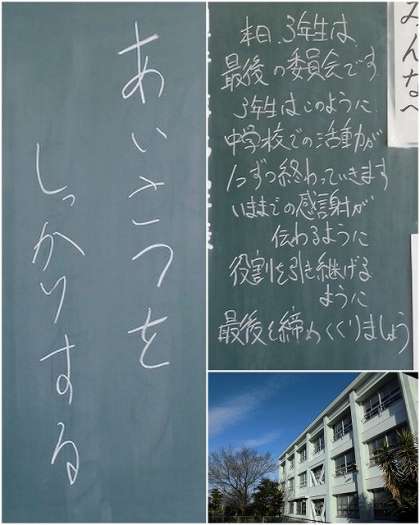 あいさつを
しっかりする
本日、3年生は、
最後の委員会です
3年生はこのように
中学校での活動が
1つずつ終わっていきます
いままでの感謝が
伝わるように
役割を引き継げる
ように
最後を締めくくりましょう
みんなへ